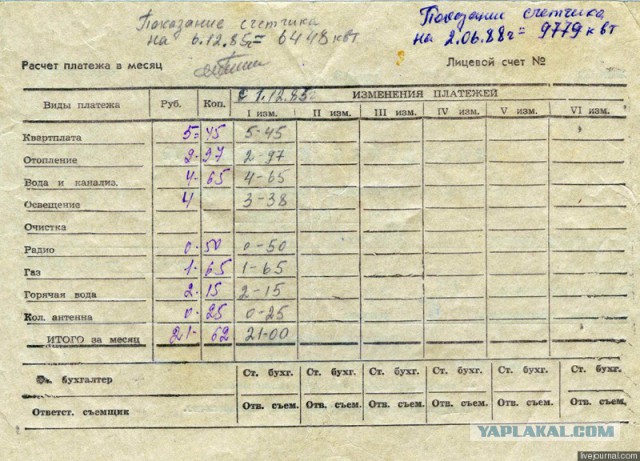 Показание счетчика
на 6.12.85г= 6448 квт.
Показании счетчика
на 2.06.88г= 9779 квт
Расчет платежа в месяц
Лицевой счет №
Виды платежа Руб. Коп. с 1.12.85г ИЗМЕНЕНИЯ ПЛАТЕЖЕЙ
I изм. II изм. III изм. IV изм. V изм. VI изм.
Квартплата 5= 45 5-45
Отопление 2- 97 2-97
Вода и канализ. 4- 65 4-65
Освещение 4 3-38
Очистка
Радио 0- 50 0-50
Газ 1- 65 1-65
Горячая вода 2- 15 2-15
Кол. антенна 0- 25 0-25
ИТОГО за месяц 21- 62 21-00
бухгалтер Ст. бухг. Ст. бухг. Ст. бухг. Ст. бухг. Ст. бухг. Ст. бухг.
Ответст. съемщик Отв. съем. Отв. съем. Отв. съем. Отв. съем. Отв. съем. Отв. съем.
YAPLAKAL.COM
livejournal.com